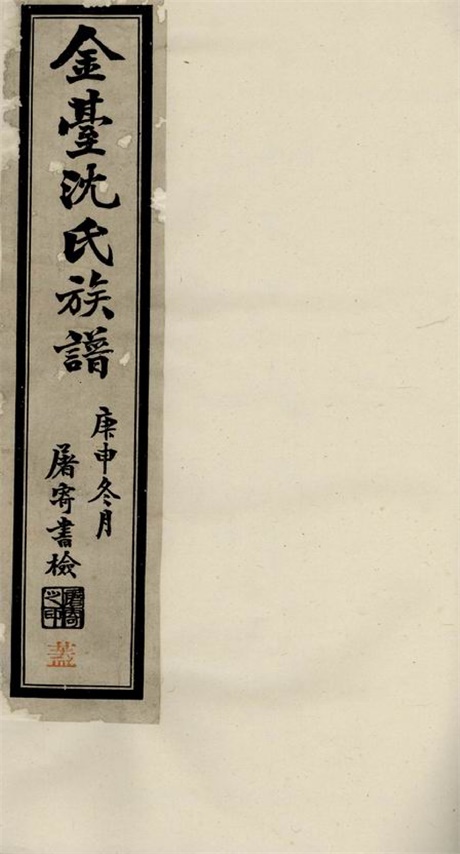 金臺沈氏族譜
庚申冬月
屠寄書檢
屠寄之印
蓋